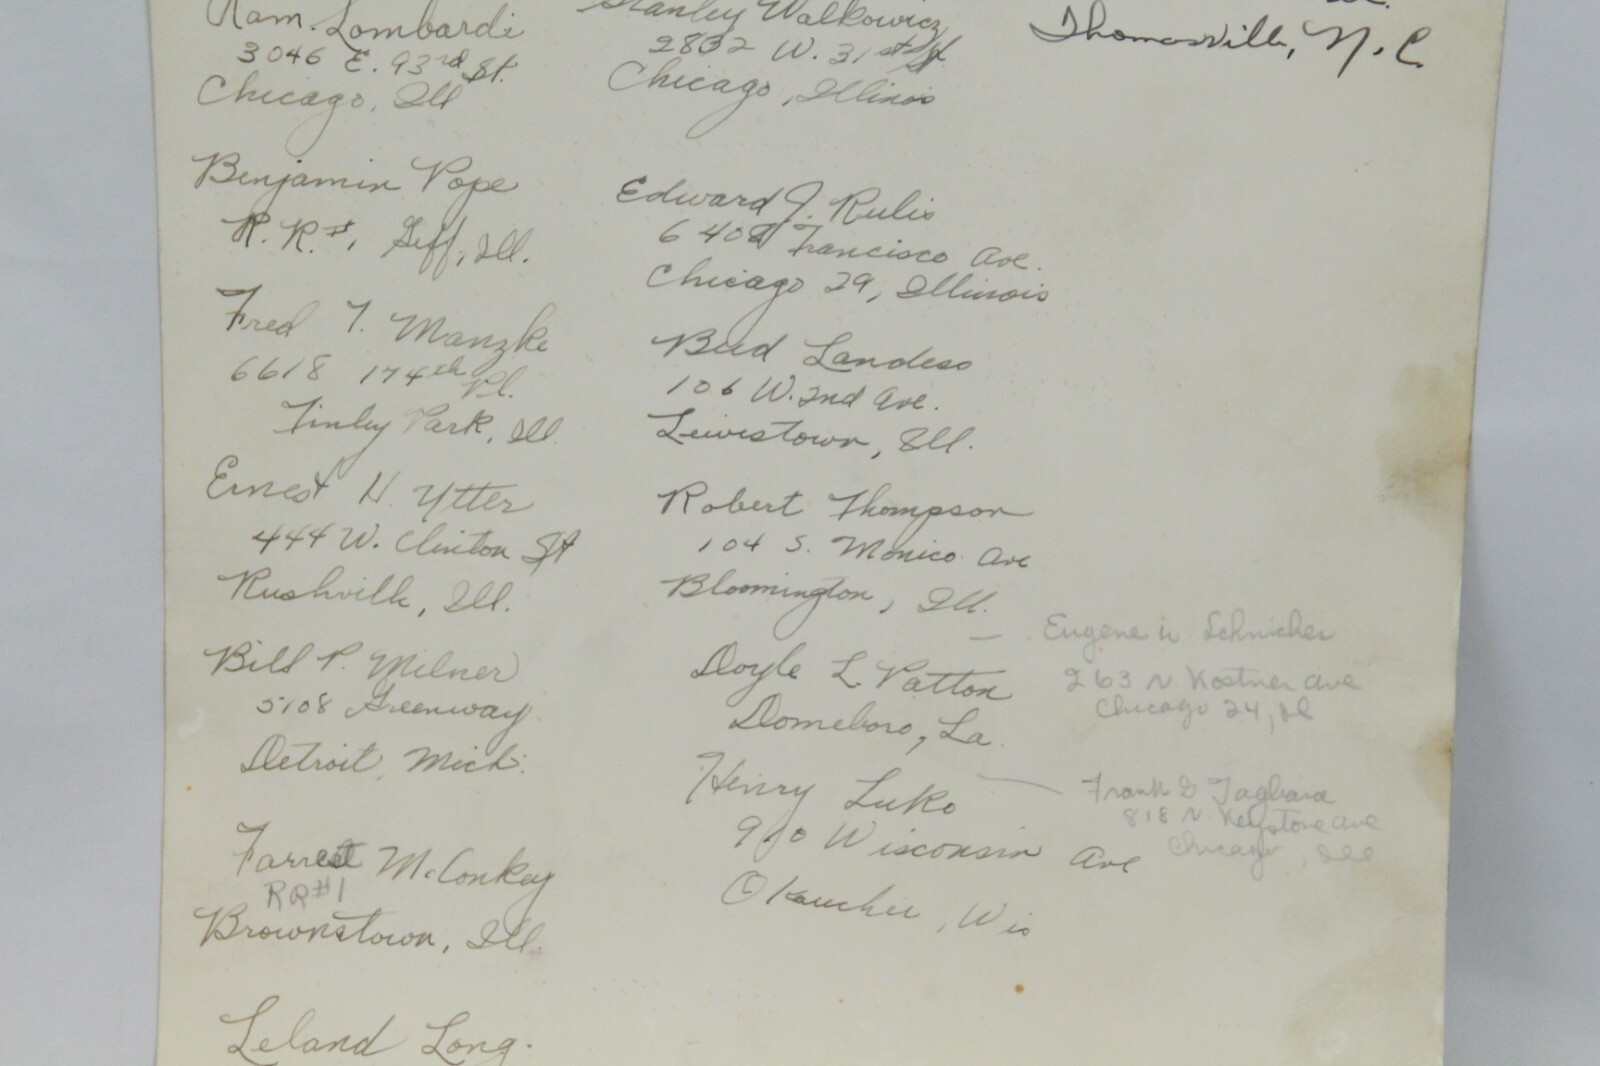 Ram. Lombardi
3046 E. 93rd St.
Chicago, Ill
Benjamin Pope
R. R. #1, Geff, Ill.
Fred T. Manzke
6618 174th Pl.
Tinley Park, Ill.
Ernest H. Ytter
444 W. Clinton St
Rushville, Ill.
Bill P. Milner
5108 Greenway
Detroit, Mich.
Farrest McConkey
RR#1
Brownstown, Ill.
Leland Long.
Stanley Walkowicz
2832 W. 31st St.
Chicago, Illinois
Edward J. Rulis
Francisco Ave.
Chicago 29, Illinois
Bud Landess
106 W. 2nd Ave.
Lewistown, Ill.
Robert Thompson
104 S. Monico Ave
Bloomington, Ill.
Doyle L. Patton
La.
Henry Luko
910 Wisconsin Ave
Okauchee, Wis
Thomasville, N.C.
Eugene W
263 N Kostner Ave
Chicago 24, Ill
Frank
818 N Keystone Ave
Chicago, Ill